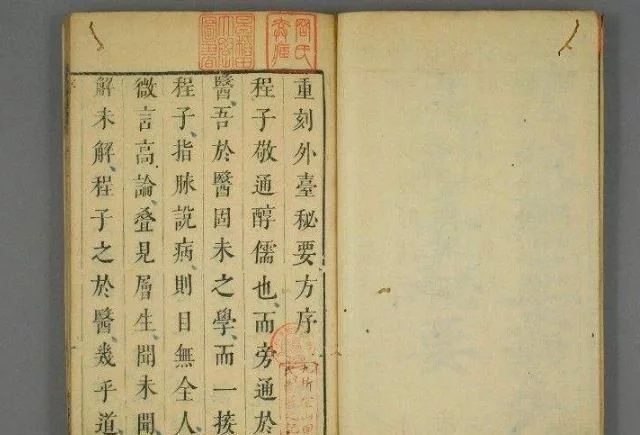 重刻外臺秘要方序
程子敬通醇儒也、而旁通於
醫、吾於醫固未之學、而一接
程子、指脉説病、則目無全人、
微言高論、叠見層生、聞未聞
解未解、程子之於醫、幾乎道